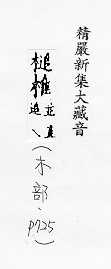 精嚴新集大藏音
槌椎
追並直
(木部、
p725)